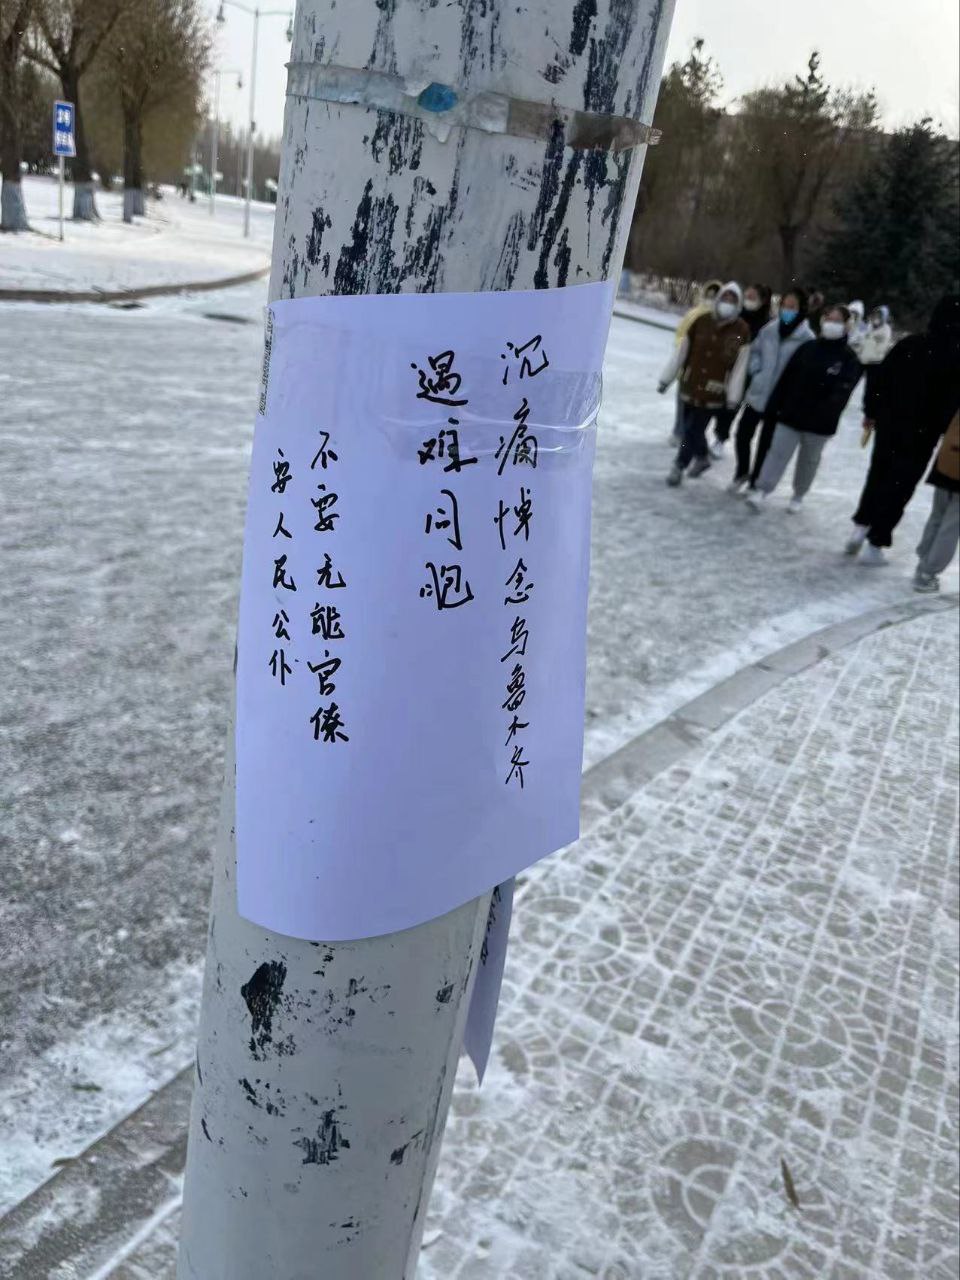 沉痛悼念乌鲁木齐
遇难同胞
不要无能官僚
要人民公仆